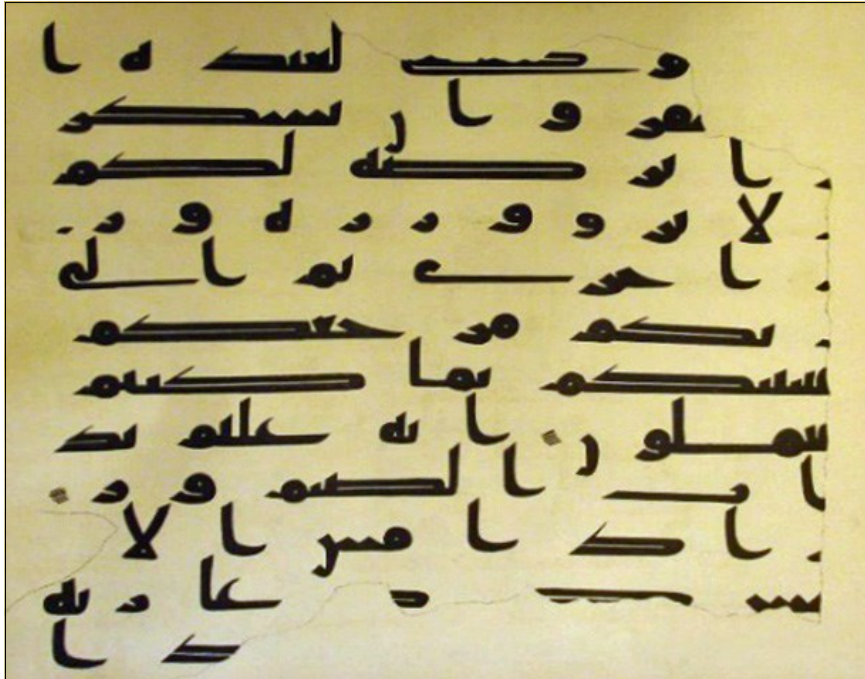 يرضى لعبده ا
لكفر و ا ن تشكر
و ا ير ضه لكم
و لا تز ر و ز ر ة و ز
ر ا خر ى ثم ا لى
ر بكم مر جعكم
فينبئكم بما كنتم
تعملو ن ا نه عليم بذ
ا ت ا لصد و ر
و ا ذ ا مس ا لا
نسن ضر د عا ر به